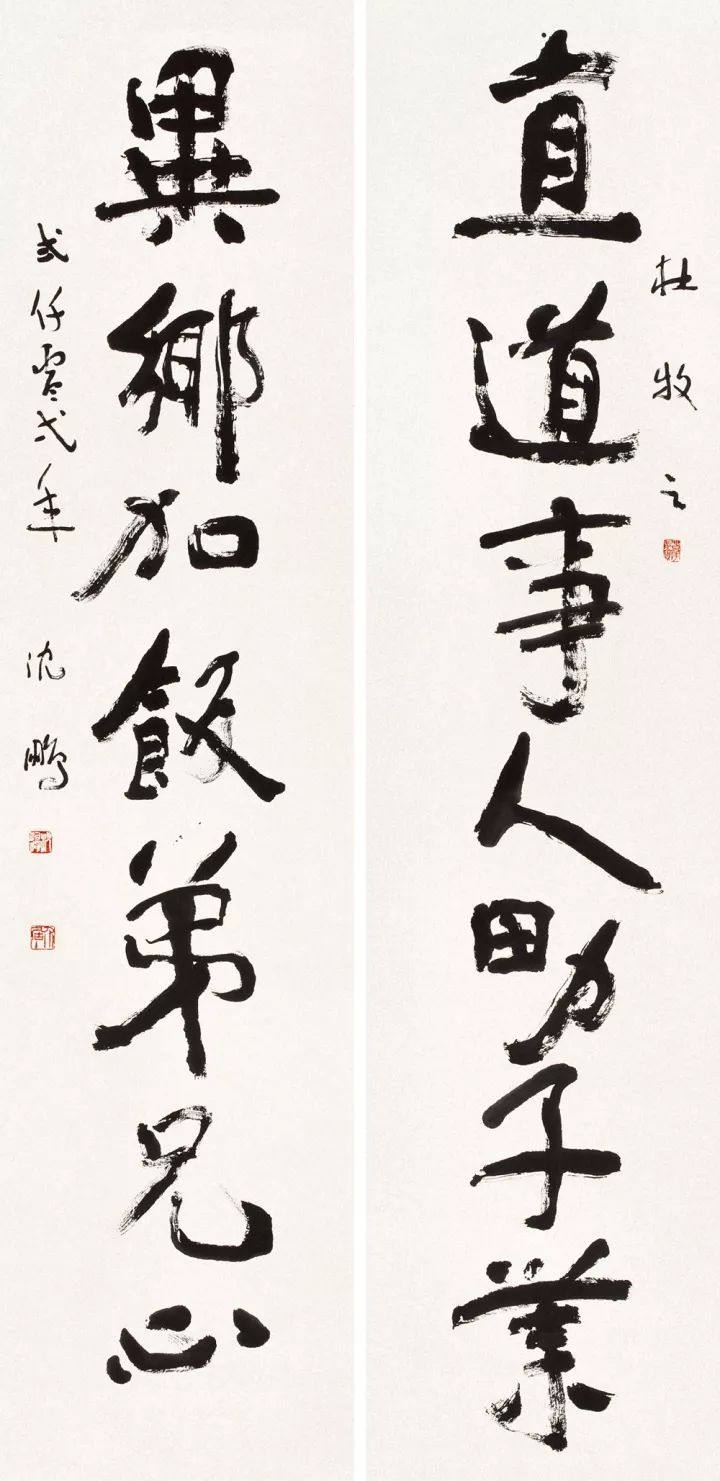 直道事人男子業
杜牧之
異鄉加飯弟兄心
弍仟零弍年
沈鵬